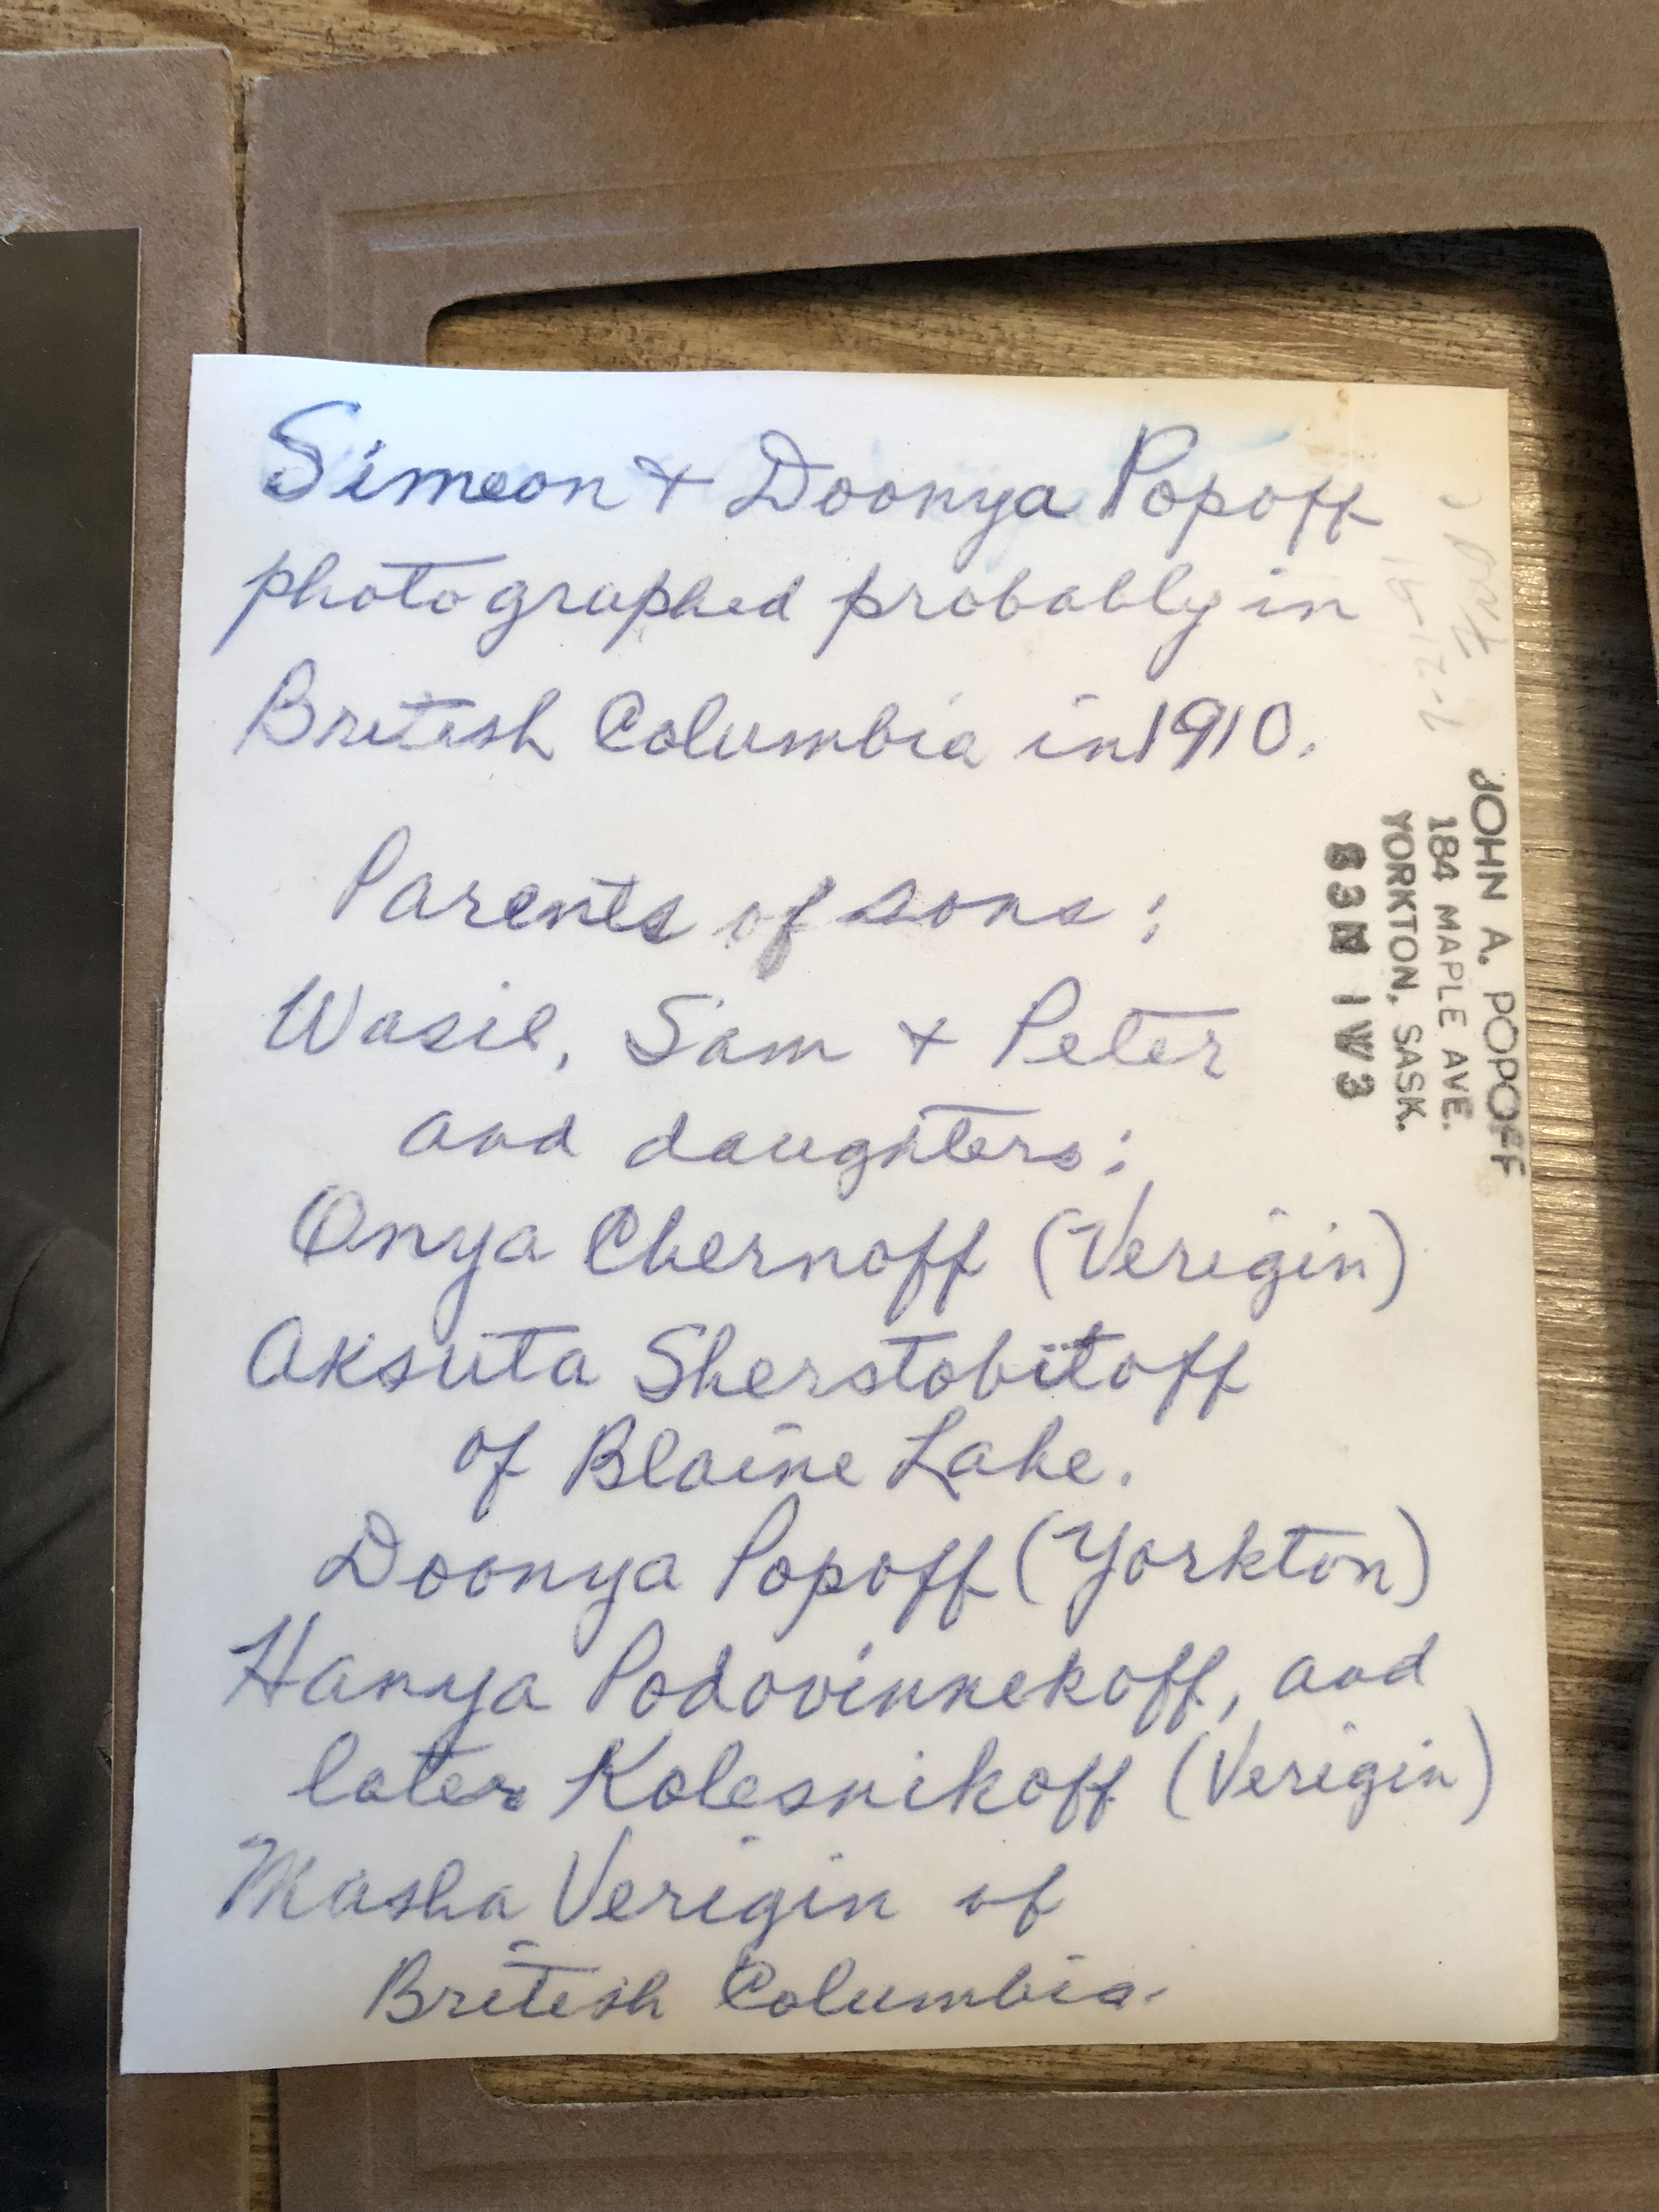 Simeon + Doonya Popoff
photographed probably in
British Columbia in 1910.
Parents of sons:
Wasil, Sam + Peter
and daughters:
Onya Chernoff (Verigin)
Aksuta Sherstobitoff
of Blaine Lake.
Doonya Popoff (Yorkton)
Hanya Podovinnekoff, and
later Kolesnikoff (Verigin)
Masha Verigin of
British Columbia.
JOHN A. POPOFF
184 MAPLE AVE.
YORKTON, SASK.
S3N 1W3